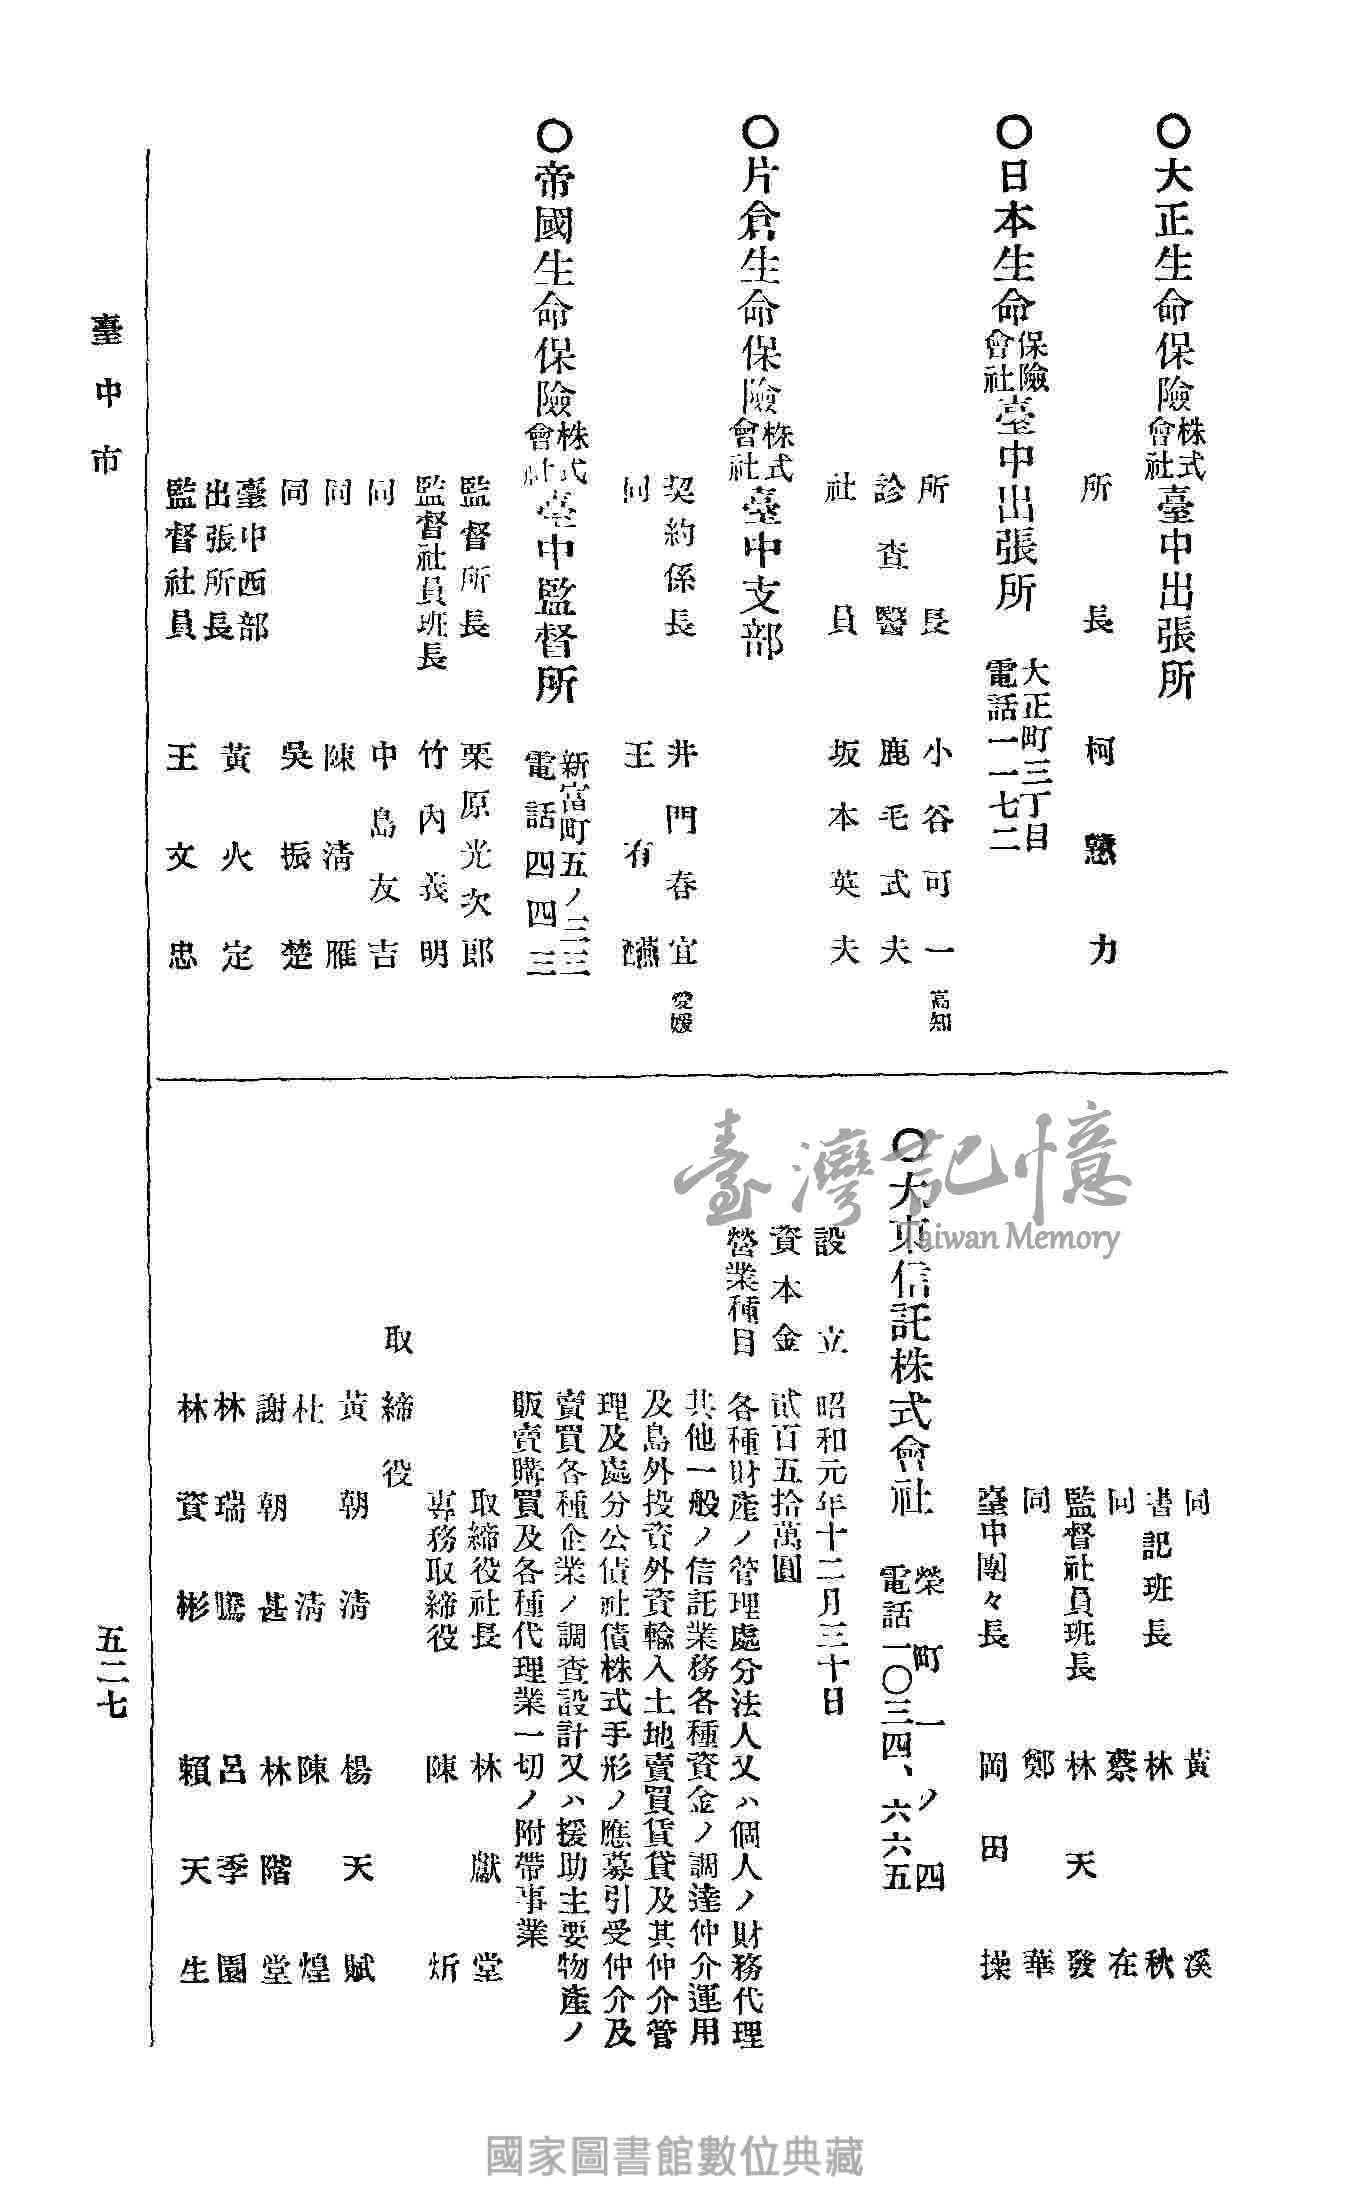 〇大正生命保險株式會社臺中出張所
所長 柯 力
〇日本生命保險會社臺中出張所 大正町三丁目 電話一一七二
所長 小谷可一 高知
診查醫 鹿毛式夫
社員 坂本英夫
〇片倉生命保險株式會社臺中支部
契約係長 井門春宜 愛媛
同 王有
〇帝國生命保險株式會社臺中監督所 新富町五ノ三三 電話四四三
監督所長 栗原光次郎
監督社員班長 竹內義明
同 中島友吉
同 陳清雁
同 吳振楚
臺中西部出張所長 黃火定
監督社員 王文忠
同 黃溪
書記班長 林秋
同 蔡在
監督社員班長 林天發
同 鄭華
臺中團々長 岡田操
〇大東信託株式會社 榮町一ノ四 電話一〇三四、六六五
設立 昭和元年十二月三十日
資本金 貳百五拾萬圓
營業種目 各種財產ノ管理處分法人又ハ個人ノ財務代理
其他一般ノ信託業務各種資金ノ調達仲介運用
及島外投資外資輸入土地賣買賃貸及其仲介管
理及處分公債社債株式手形ノ應募引受仲介及
賣買各種企業ノ調查設計又ハ援助主要物產ノ
販賣購買及各種代理業一切ノ附帶事業
取締役社長 林獻堂
專務取締役 陳炘
取締役
黃朝清 楊天賦
杜清 陳煌
謝朝甚 林階堂
林瑞騰 呂季園
林資彬 賴天生
臺中市
五二七
臺灣記憶
Taiwan Memory
國家圖書館數位典藏